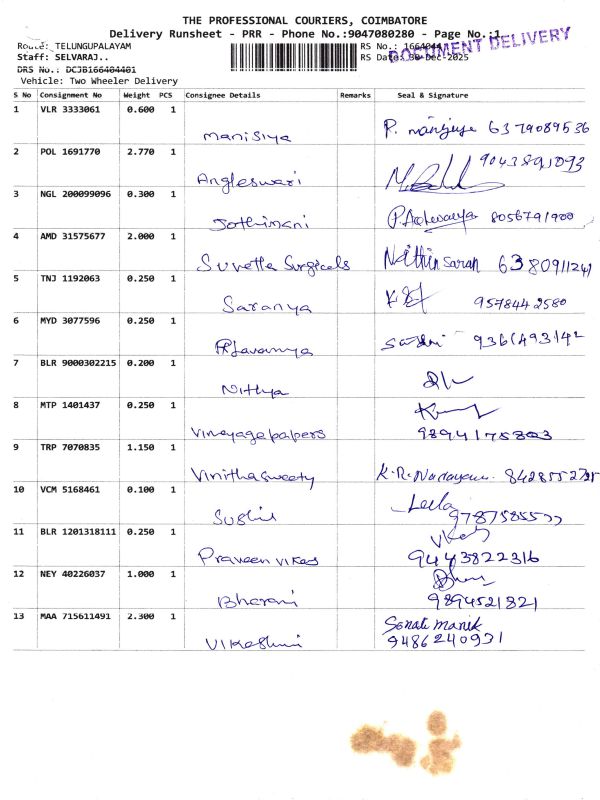 THE PROFESSIONAL COURIERS, COIMBATORE
Delivery Runsheet - PRR - Phone No.:9047080280 - Page No.:1
Route: TELUNGUPALAYAM
RS No.:
DOCUMENT DELIVERY
Staff: SELVARAJ..
RS Date: 30-Dec-2025
DRS No.: DCJB166404401
Vehicle: Two Wheeler Delivery
S No Consignment No Weight PCS Consignee Details Remarks Seal & Signature
1 VLR 3333061 0.600 1
manisiya P. 6379089536
2 POL 1691770 2.770 1
Angleswari
3 NGL 200099096 0.300 1
Jothimani 8056791900
4 AMD 31575677 2.000 1
Suvetha Surgicals Nithinsaran
5 TNJ 1192063 0.250 1
Saranya 9578442580
6 MYD 3077596 0.250 1
7 BLR 9000302215 0.200 1
Nithya
8 MTP 1401437 0.250 1
Vinayagapapers 9894175803
9 TRP 7070835 1.150 1
Vinithasweety K.R.
10 VCM 5168461 0.100 1
Leela
Sushil
11 BLR 1201318111 0.250 1
Vikas
Praveen vikas 9443822316
12 NEY 40226037 1.000 1
Bharani 9894521821
13 MAA 715611491 2.300 1
Sonali Manik
Vikashini 9486240931